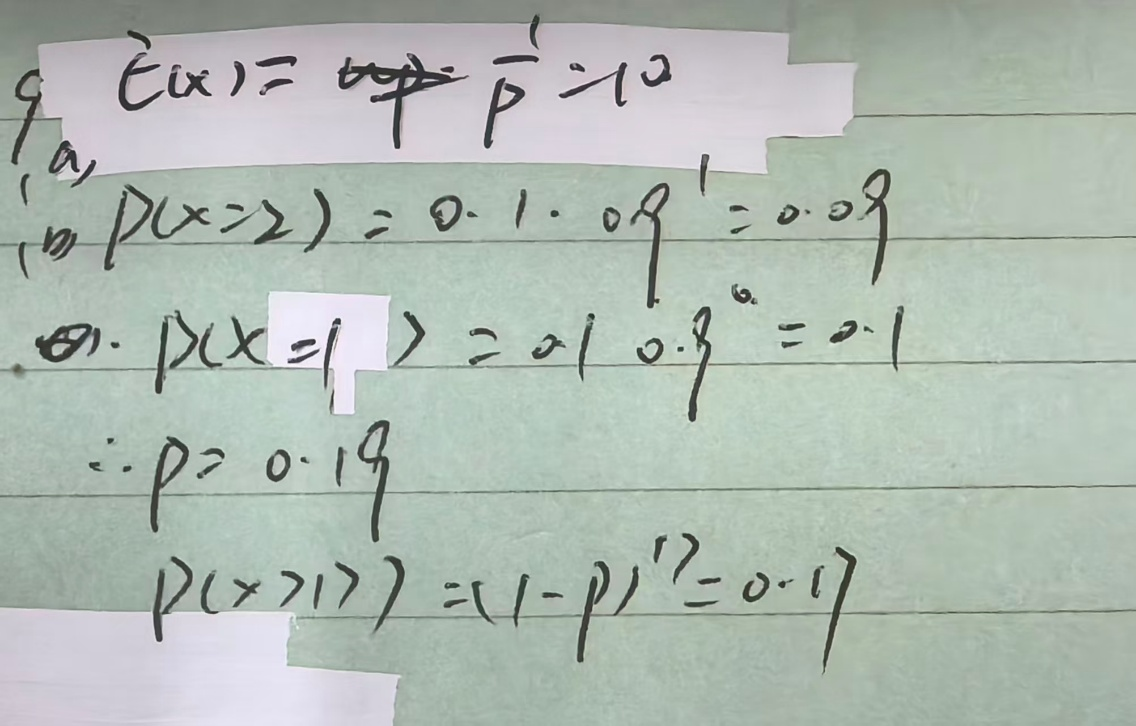 9 a) E(x) = 1/p = 10
i b) P(x=2) = 0.1 · 0.9^1 = 0.09
P(x=1) = 0.1 0.9^0 = 0.1
∴ p = 0.19
P(x>17) = (1-p)^17 = 0.17